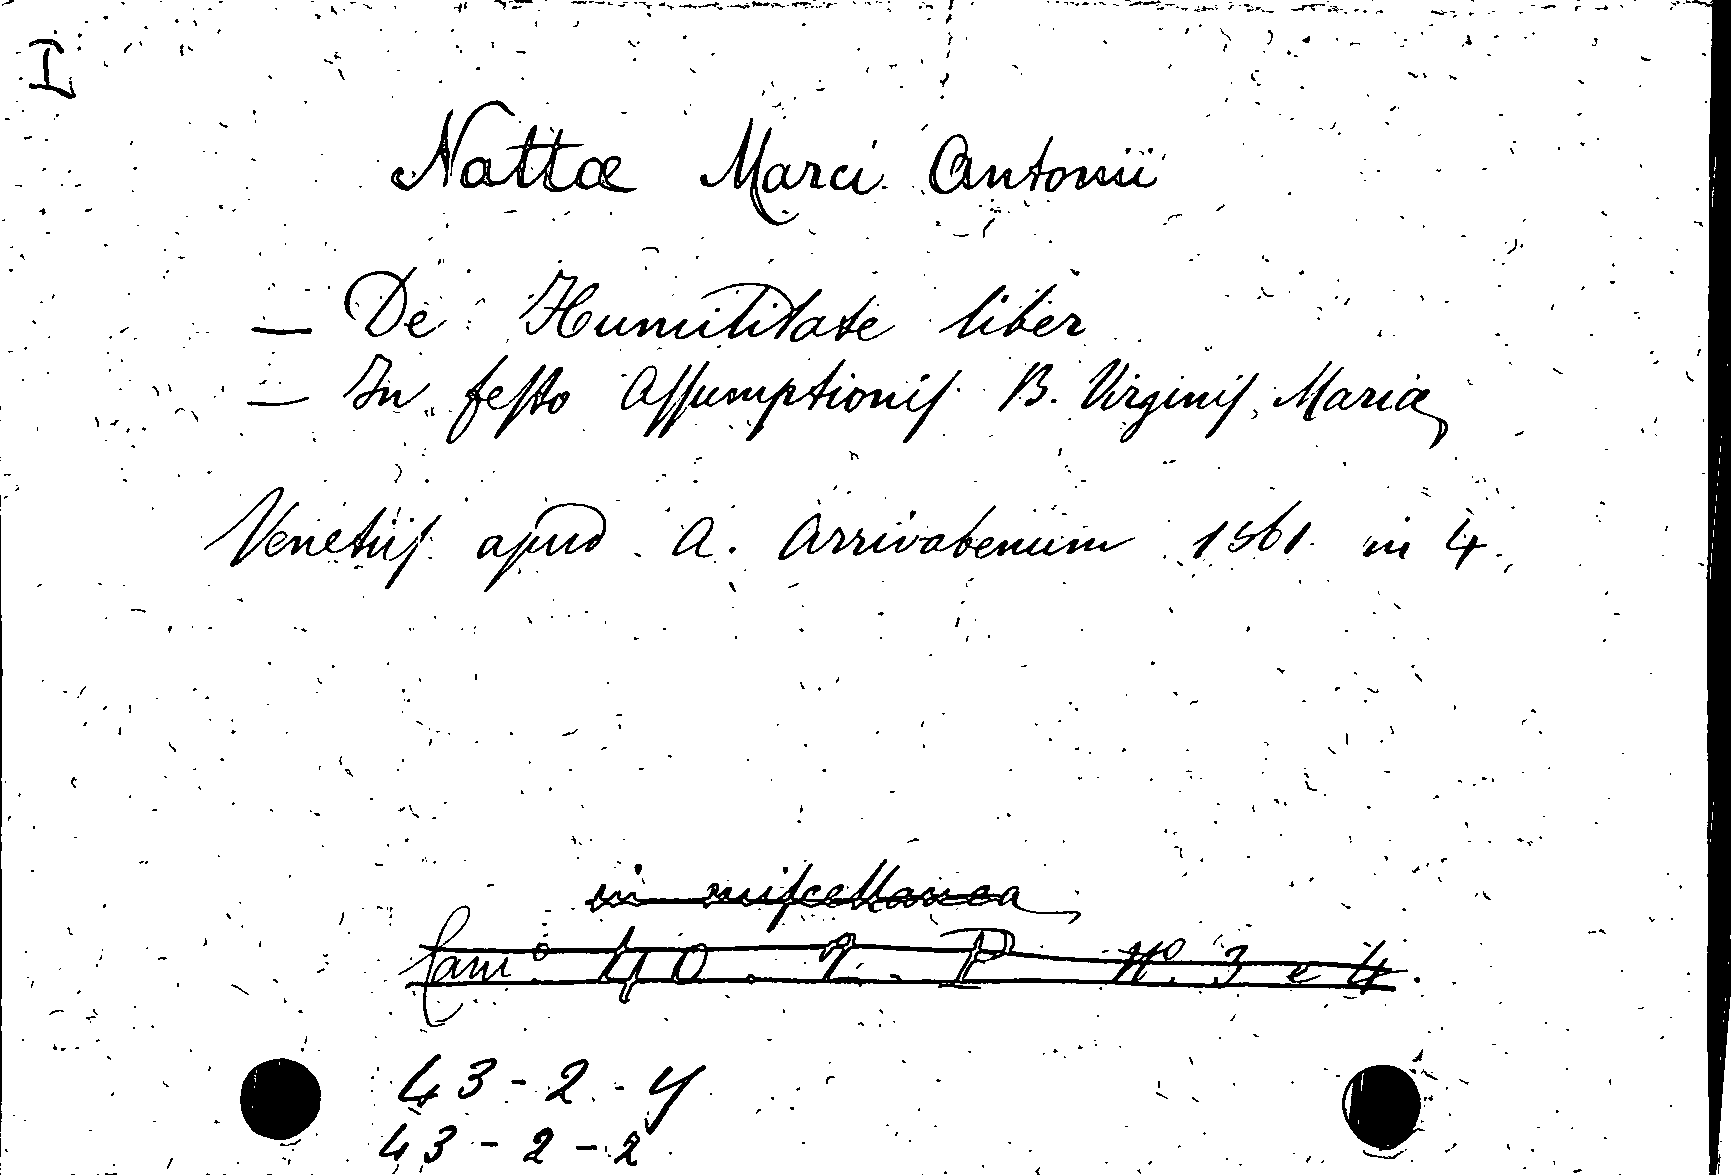 I
Nattæ Marci Antonii
— De Humilitate liber
— In festo Assumptionis B. Virginis Mariæ
Venetiis apud A. Arrivabenum 1561 in 4.
in miscellanea
Cam.º 40. 2. P N.º 3 e 4.
43-2-y
43-2-2